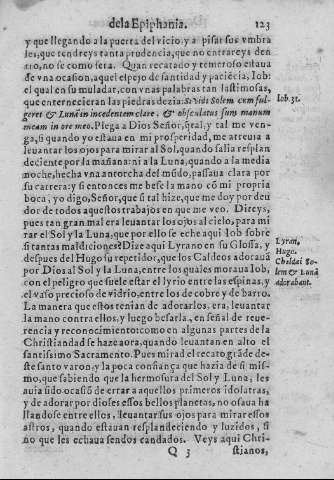 dela Epiphania. 123
y que llegando a la puerta del vicio, y a pisar sus vmbra
les, que tengays tanta prudencia, que no entrareys den
tro, no se como sera. Quan recatado y temeroso estaua
de vna ocasion, aquel espejo de santidad y paciēcia, Iob:
el qual en su muladar, con vnas palabras tan lastimosas,
que enternecieran las piedras dezia: Si vidi Solem cum ful-
geret & Lunā in incedentem clare, & obsculatus sum manum
meam in ore meo. Plega a Dios Señor, q̄ tal, y tal me ven-
ga, si quando yo estaua en mi prosperidad, me atreuia a
leuantar los ojos para mirar al Sol, quando salia resplan
deciente por la mañana: ni a la Luna, quando a la media
noche, hecha vna antorcha del mūdo, passaua clara por
su carrera: y si entonces me bese la mano cō mi propria
boca, yo digo, Señor, que si tal hize, que me doy por deu
dor de todos aquestos trabajos en que me veo. Direys,
pues tan gran mal era leuantar los ojos al cielo, para mi
rar el Sol y la Luna, que por ello se eche aqui Iob sobre
si tantas maldiciones? Dize aqui Lyrano en su Glossa, y
despues del Hugo su repetidor, que los Caldeos adorauā
por Dios al Sol y la Luna, entre los quales moraua Iob,
con el peligro que suele estar el lyrio entre las espinas, y
el vaso precioso de vidrio, entre los de cobre y de barro.
La manera que estos tenian de adorarlos, era, leuantar
la mano contra ellos, y luego besarla, en señal de reue-
rencia y reconocimiento: como en algunas partes de la
Christiandad se haze aora, quando leuantan en alto el
santissimo Sacramento. Pues mirad el recato grāde de-
ste santo varon, y la poca confiança que hazia de si mis-
mo, que sabiendo que la hermosura del Sol y Luna, les
auia sido ocasiō de errar a aquellos primeros idolatras,
y de adorar por dioses essos bellos planetas, no osaua ha
llandose entre ellos, leuantar sus ojos para mirar essos
astros, quando estauan resplandeciendo y luzidos, si
no que les echaua sendos candados. Veys aqui Chri-
Q 3 stianos,
Iob. 31.
Lyran.
Hugo.
Chaldæi So-
lem & Lunā
adorabant.